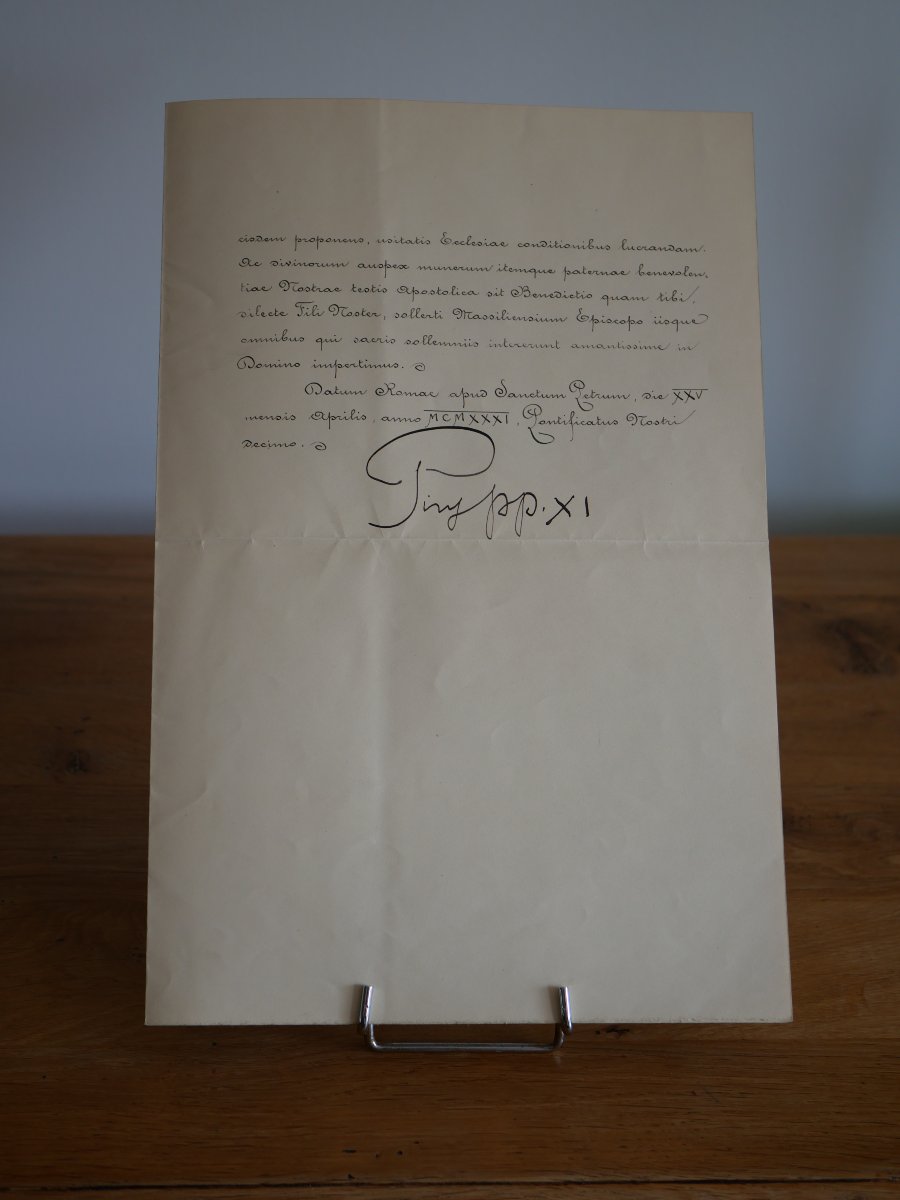 eisdem proponens, usitatis Ecclesiae conditionibus lucrandam.
Ac divinorum auspex munerum itemque paternae benevolen,
tiae Nostrae testis Apostolica sit Benedictio quam tibi,
dilecte Fili Noster, sollerti Massiliensium Episcopo iisque
omnibus qui sacris sollemniis intererunt amantissime in
Domino impertimus.
Datum Romae apud Sanctum Petrum, die XXV
mensis Aprilis, anno MCMXXXI, Pontificatus Nostri
decimo.
Pius pp. XI